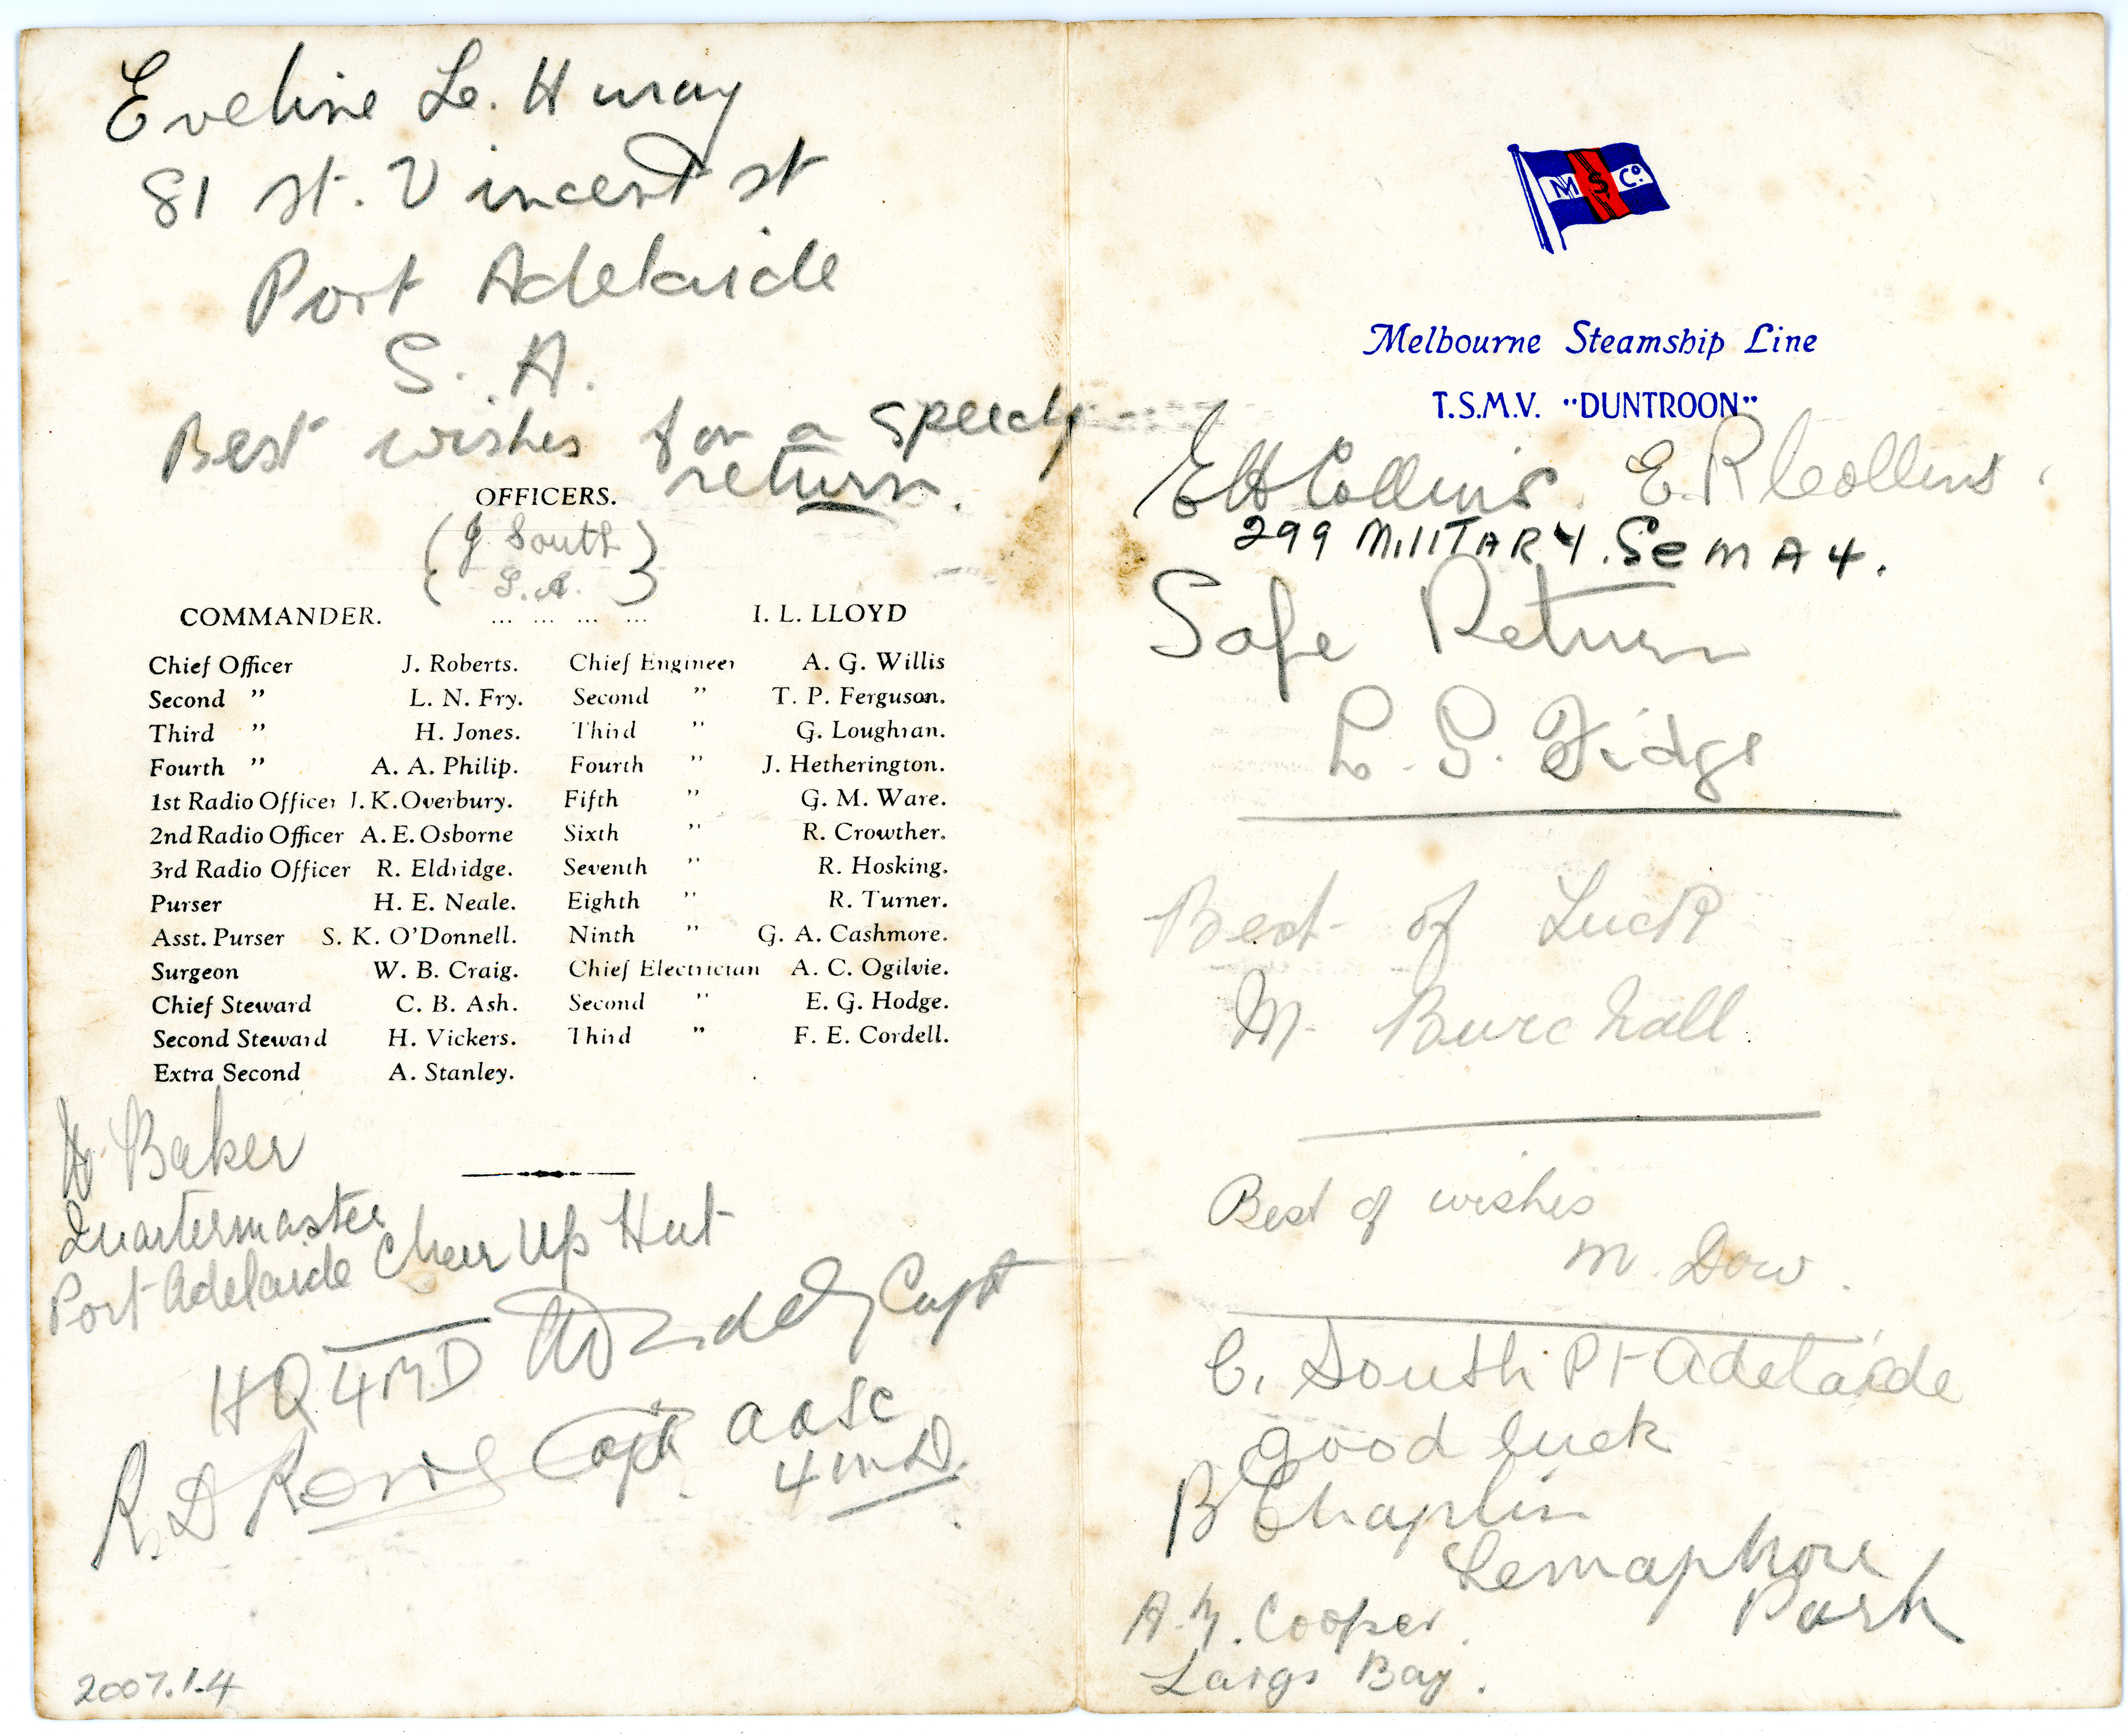 Eveline Le. Huray
81 St. Vincent st
Port Adelaide
S. A.
Best wishes for a speedy
return.
OFFICERS.
(J South)
S.A.
COMMANDER. ... ... ... ... I. L. LLOYD
Chief Officer J. Roberts. Chief Engineer A. G. Willis
Second " L. N. Fry. Second " T. P. Ferguson.
Third " H. Jones. Third " G. Loughran.
Fourth " A. A. Philip. Fourth " J. Hetherington.
1st Radio Officer J. K. Overbury. Fifth " G. M. Ware.
2nd Radio Officer A. E. Osborne Sixth " R. Crowther.
3rd Radio Officer R. Eldridge. Seventh " R. Hosking.
Purser H. E. Neale. Eighth " R. Turner.
Asst. Purser S. K. O'Donnell. Ninth " G. A. Cashmore.
Surgeon W. B. Craig. Chief Electrician A. C. Ogilvie.
Chief Steward C. B. Ash. Second " E. G. Hodge.
Second Steward H. Vickers. Third " F. E. Cordell.
Extra Second A. Stanley.
Baker
Quartermaster
Port Adelaide Cheer Up Hut
HQ 4MD Capt
R. D Capt. AASC
4 MD.
2007.1.4
M S Co.
Melbourne Steamship Line
T.S.M.V. "DUNTROON"
EH Collins. E. R Collins.
299 MIlITARY. SemA4.
Safe Return
L. G. Fidge
Best of Luck
M. Burchall.
Best of wishes
M. Dow.
C. South Pt Adelaide
Good luck
B Chaplin
Semaphore
Park
A. M. Cooper.
Largs Bay.